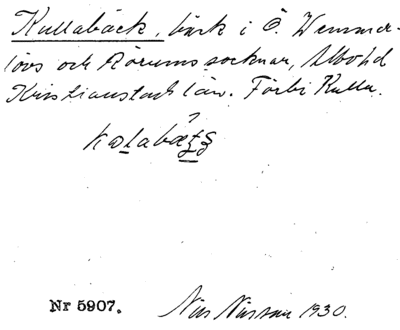 Kullabäck, bäck i Ö. Vemmer-
lövs och Rörums socknar, Albo hd
Kristianstads län. Förbi Kulla.
Nr 5907.
Nils Nilsson 1930.